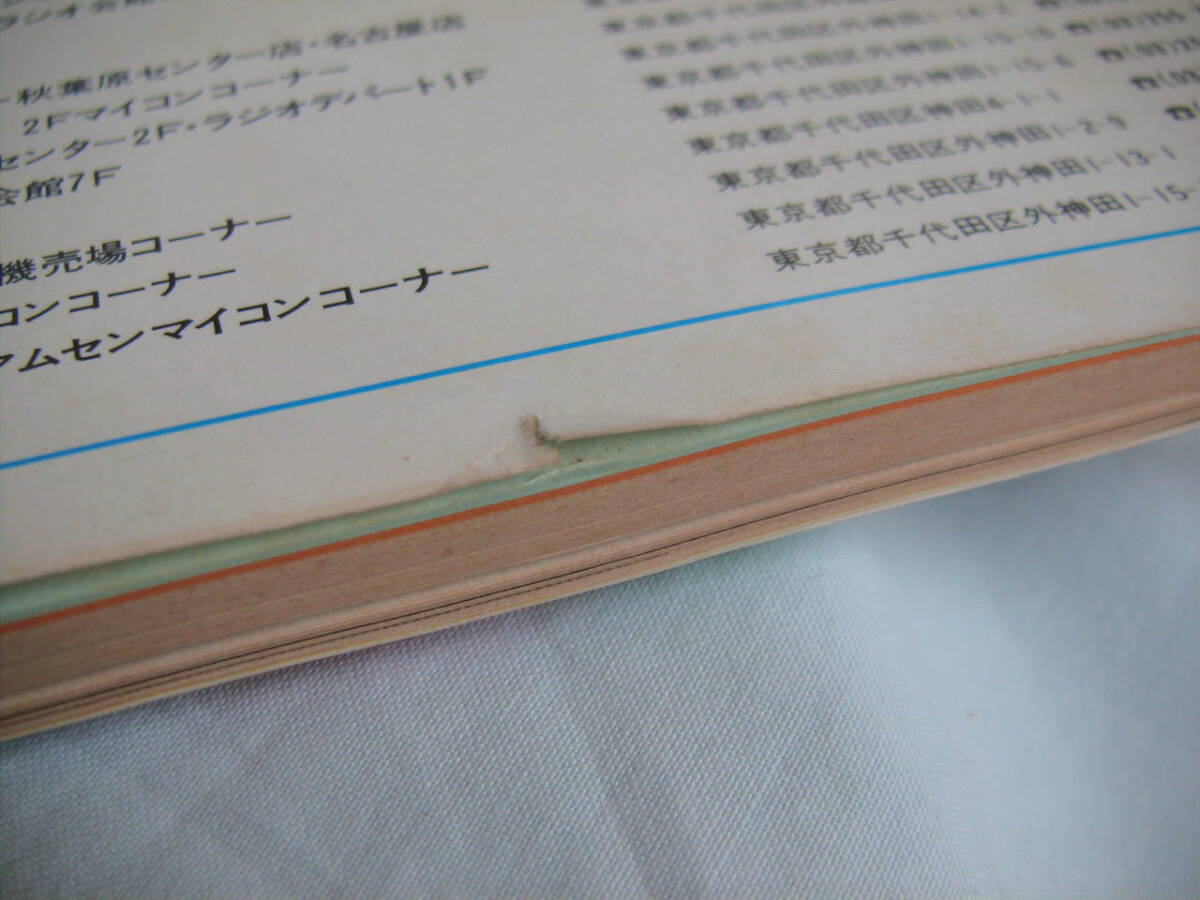 ラジオ会館
秋葉原センター店・名古屋店
2Fマイコンコーナー
センター2F・ラジオデパート1F
会館7F
機売場コーナー
コンコーナー
アムセンマイコンコーナー
東京都千代田区外神田
東京都千代田区外神田1-15-16 ☎(03)
東京都千代田区外神田1-15-6 ☎(03)25
東京都千代田区神田4-1-1 ☎(03
東京都千代田区外神田1-2-9 ☎
東京都千代田区外神田1-13-1
東京都千代田区外神田1-15-